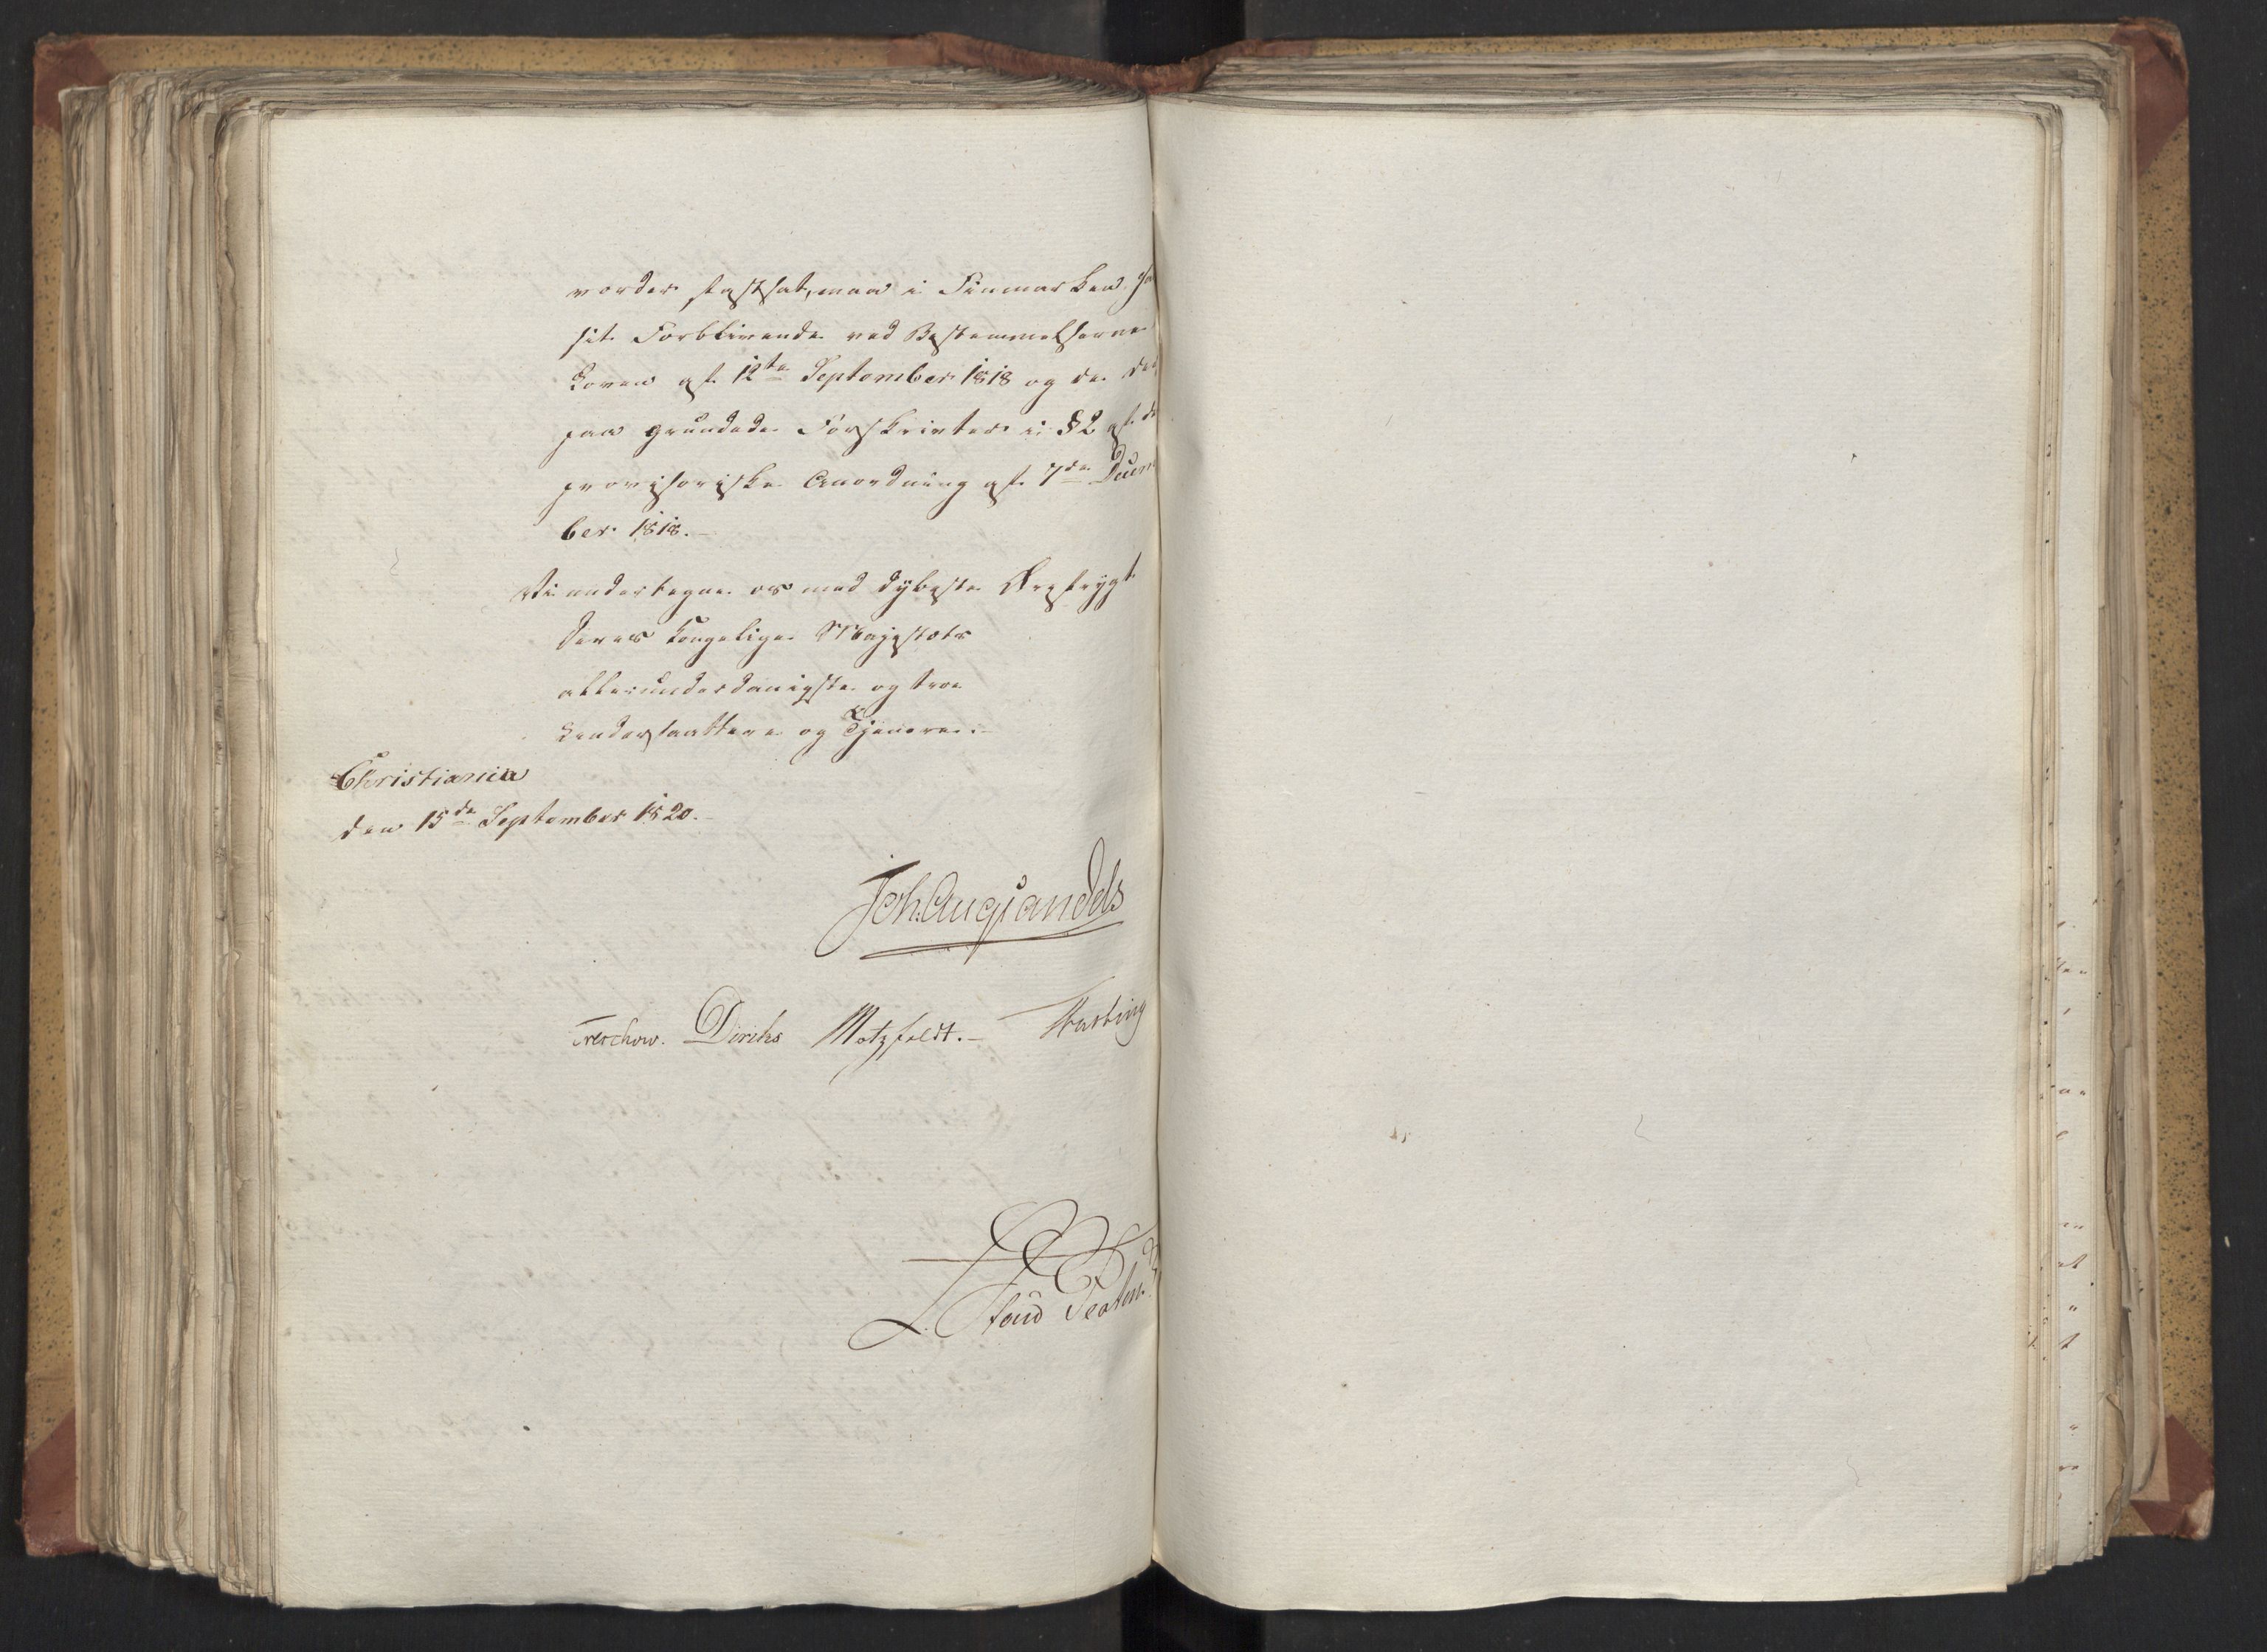 vorder fastsat, maa i Finmarken ha
sit Forblivende ved Bestemmelserne
Loven af 12te September 1818 og de der
paa grundede Forskrivter i § 2 af de
provisoriske Anordning af 7de Decem
ber 1818.-
Vi undertegne os med dybeste Ærefrygt
Deres Kongelige Majestæts
allerunderdanigste og troe
Undersaattere og Tjenere:
Christiania
den 15de September 1820.
Joh. Aug. Sandels
Treschow. Diriks Motzfeldt.-